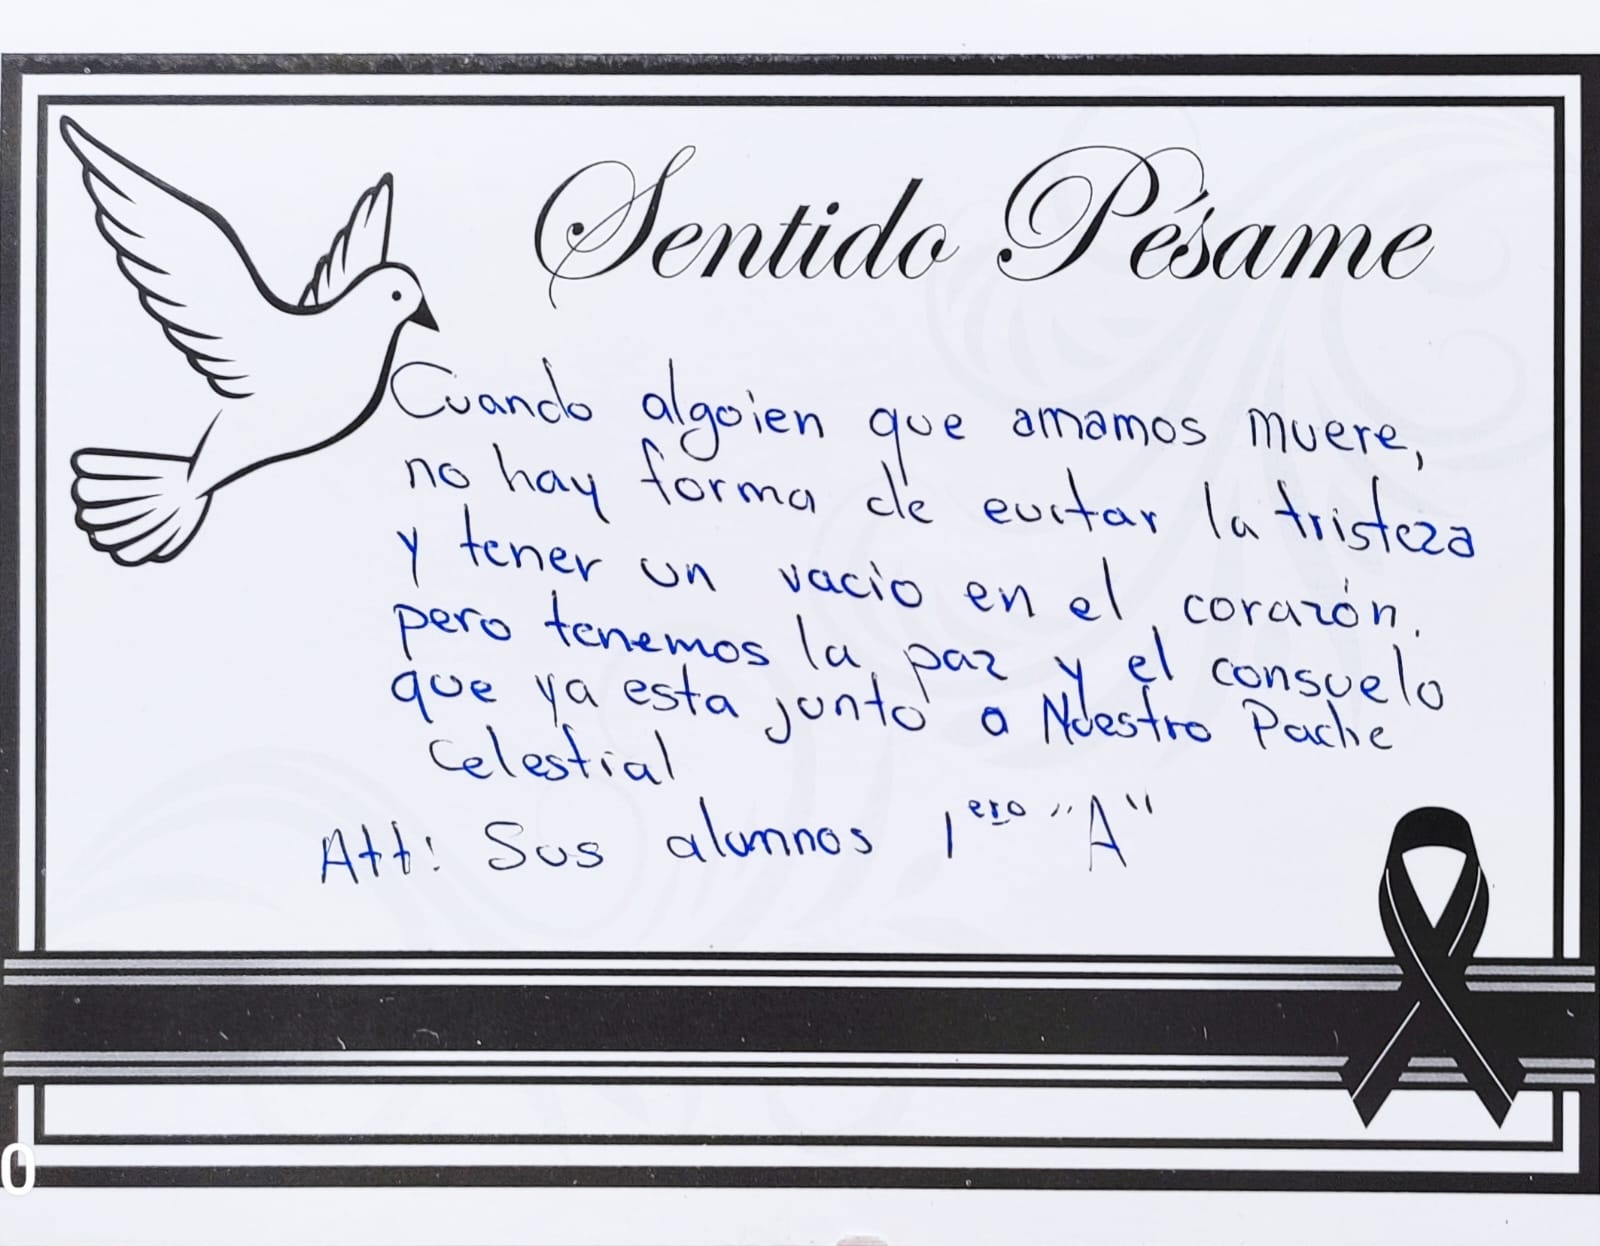 Sentido Pésame
Cuando alguien que amamos muere,
no hay forma de evitar la tristeza
y tener un vacio en el corazón.
pero tenemos la paz y el consuelo
que ya esta junto a Nuestro Padre
Celestial
Att: Sus alumnos 1ero "A"
0